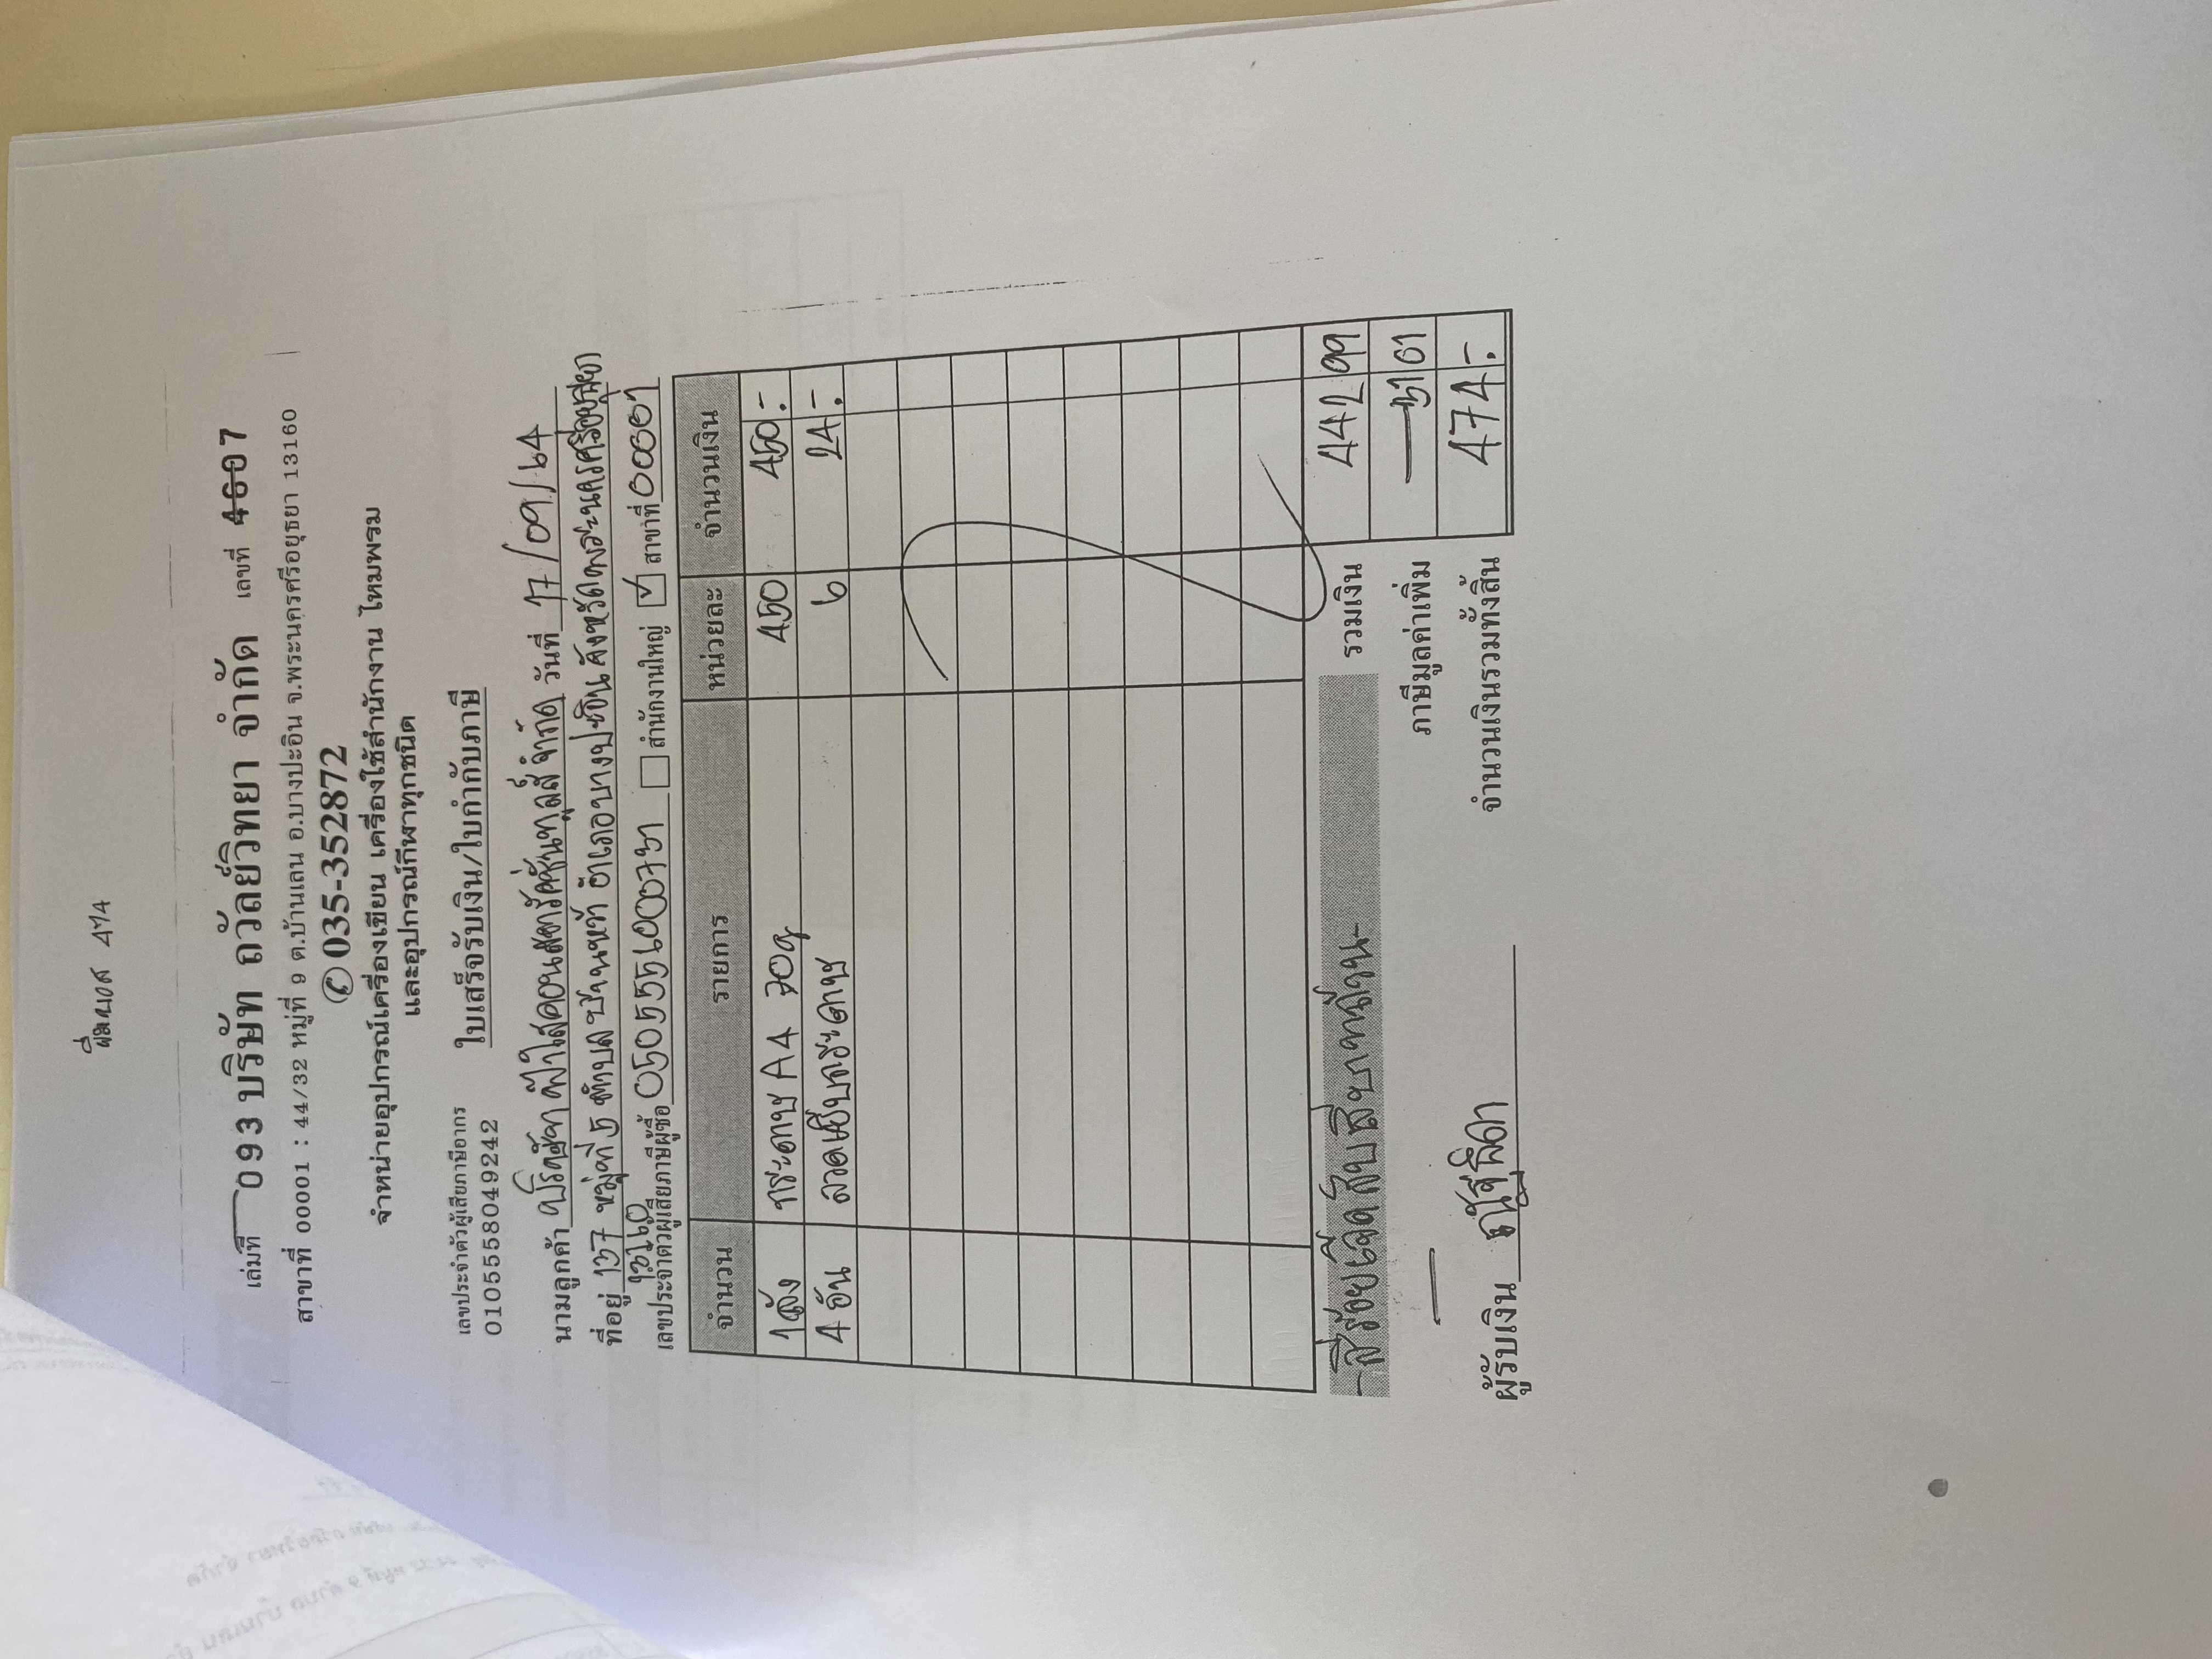 474
เล่มที่ 093 บริษัท ถวัลย์วิทยา จำกัด เลขที่ 4607
สาขาที่ 00001 : 44/32 หมู่ที่ 9 ต.บ้านเลน อ.บางปะอิน จ.พระนครศรีอยุธยา 13160
✆ 035-352872
จำหน่ายอุปกรณ์เครื่องเขียน เครื่องใช้สำนักงาน ไหมพรม
และอุปกรณ์กีฬาทุกชนิด
เลขประจำตัวผู้เสียภาษีอากร
0105558049242
ใบเสร็จรับเงิน/ใบกำกับภาษี
นามลูกค้า บริษัท ฟ้าใสคอนสตรัคชั่นทูลส์ จำกัด วันที่ 17/09/64
ที่อยู่ 137 หมู่ที่ 5 ตำบล บ้านหว้า อำเภอบางปะอิน จังหวัดพระนครศรีอยุธยา
13160
เลขประจำตัวผู้เสียภาษีผู้ซื้อ 0505556003731 สำนักงานใหญ่ ✓ สาขาที่ 00001
จำนวน รายการ หน่วยละ จำนวนเงิน
1 ลัง กระดาษ A4 70g 450 450 .-
4 อัน ลวดเย็บกระดาษ 6 24 .-
-สี่ร้อยเจ็ดสิบสี่บาทถ้วน- รวมเงิน 442 99
ภาษีมูลค่าเพิ่ม 31 01
จำนวนเงินรวมทั้งสิ้น 474 .-
ผู้รับเงิน